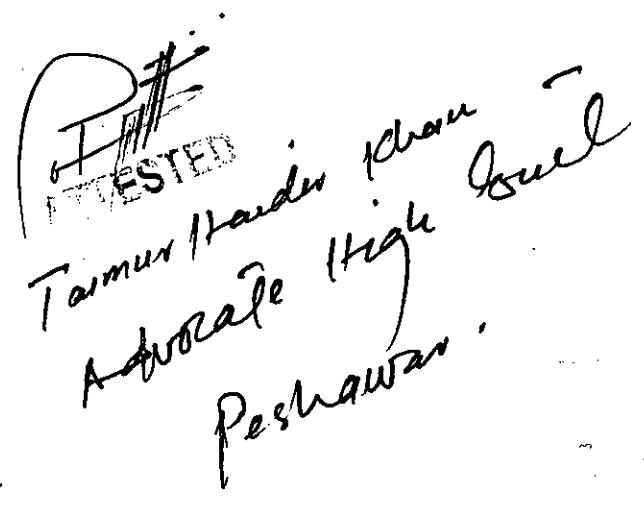 ATTESTED
Taimur Haider Khan
Advocate High Court
Peshawar.